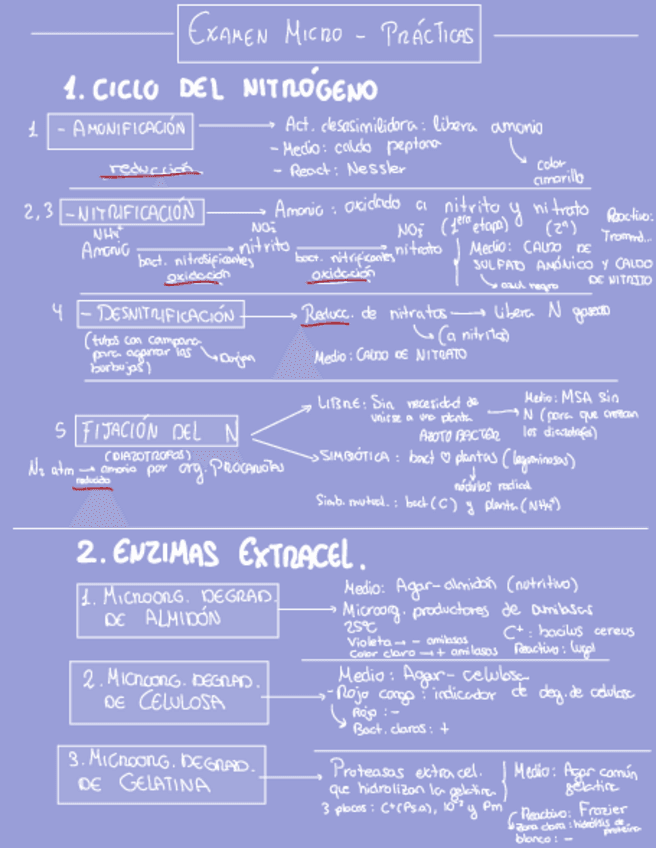 EXAMEN MICRO - PRÁCTICAS
1. CICLO DEL NITRÓGENO
1 - AMONIFICACIÓN
Act. desasimiladora: libera amonio
- Medio: caldo peptona
- React: Nessler
color
amarillo
reducción
2,3 - NITRIFICACIÓN
Amonio: oxidado a nitrito y nitrato
(1era etapa) (2ª)
Reactivo:
Tromd...
NH4+ NO2- NO3-
Amonio nitrito nitrato
bact. nitrosificantes bact. nitrificantes
oxidación oxidación
Medio: CALDO DE
SULFATO AMÓNICO Y CALDO
DE NITRITO
azul negro
4 - DESNITRIFICACIÓN
Reducc. de nitratos libera N gaseoso
(a nitritos)
Medio: CALDO DE NITRATO
(tubos con campana
para agarrar las
burbujas)
5 FIJACIÓN DEL N
(DIAZOTROFOS)
N2 atm amonio por org. PROCARIOTAS
reducido
LIBRE: Sin necesidad de
unirse a una planta
AZOTOBACTER
Medio: MSA sin
N (para que crezcan
los diazotrofos)
SIMBIÓTICA: bact ♡ plantas (leguminosas)
nódulos radical
Simb. mutual.: bact (C) y planta (NH4+)
2. ENZIMAS EXTRACEL.
1. MICROORG. DEGRAD.
DE ALMIDÓN
Medio: Agar-almidón (nutritivo)
Microorg. productores de amilasas
25ºC
Violeta → - amilasas
Color claro → + amilasas
C+: bacilus cereus
Reactivo: lugol
2. MICROORG. DEGRAD.
DE CELULOSA
Medio: Agar-celulosa
- Rojo congo: indicador de deg. de celulosa
Rojo: -
Bact. claros: +
3. MICROORG. DEGRAD.
DE GELATINA
Proteasas extracel.
que hidrolizan la gelatina
3 placas: C+(Ps.a), 10-2 y Pm
Medio: Agar común
gelatina
Reactivo: Frazier
Zona clara: hidrólisis de
proteína
blanco: -